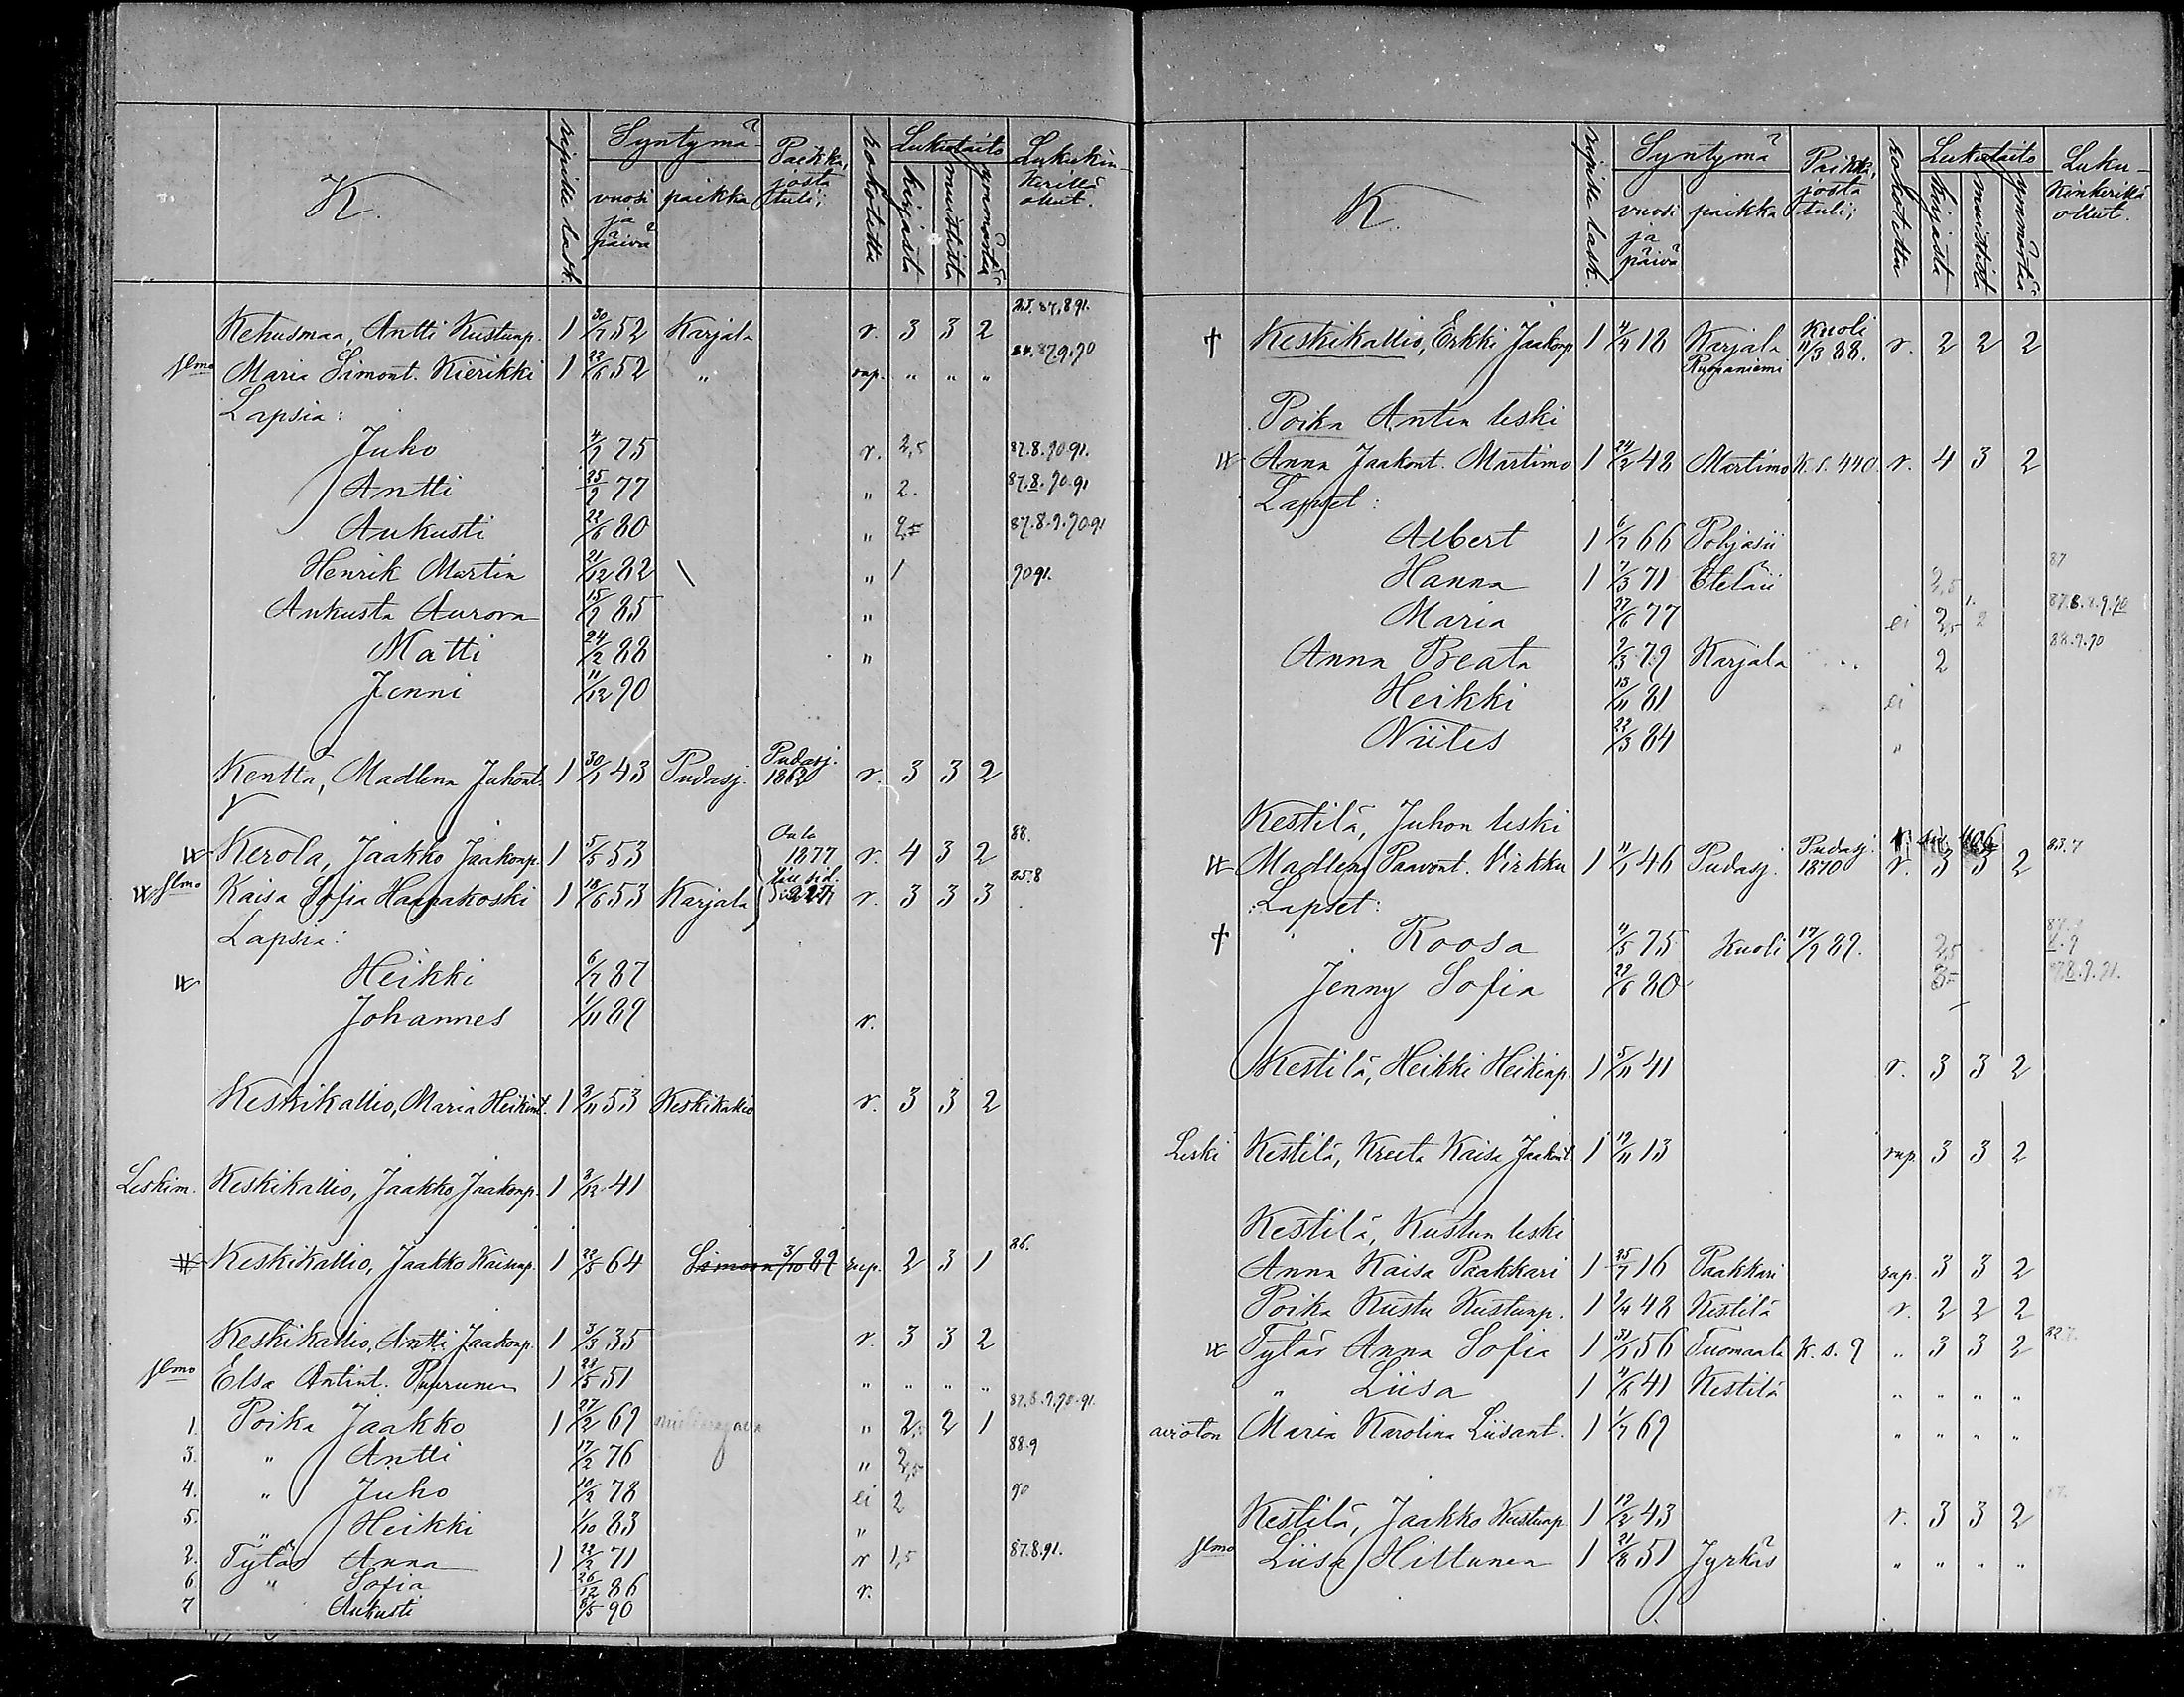 K.
ripille lask.
Syntymä-
vuosi ja päivä
paikka
Paikka, josta tuli;
rokotettu
Lukutaito
kirjasta
muistista
ymmärtää
Lukukinkerillä ollut.
25. 87,8 91.
Kehusmaa, Antti Kustunp. 1 30/7 52 Karjala r. 3 3 2
87.9.90
Maria Simont. Kierikki 1 22/6 52 " rup. " " "
Lapsia:
Juho 4/2 75 r. 2,5 87.8.90.91.
Antti 25/9 77 " 2. 87.8.90.91
Aukusti 22/6 80 " 87.8.9.90.91
Henrik Martin 21/12 82 " 1 90 91.
Aukusta Aurora 15/9 85 "
Matti 24/2 88 "
Jenni 11/12 90
Kenttä, Madlena Juhont. 1 30/1 43 Pudasj. Pudasj. 1862 r. 3 3 2
Kerola, Jaakko Jaakonp. 1 5/5 53 Oulu 1877 r. 4 3 2 88.
Kaisa Sofia Haapakoski 1 18/6 53 Karjala r. 3 3 3 85.8
Lapsia:
Heikki 6/7 87
Johannes 1/11 89 r.
Keskikallio, Maria Heikint. 1 2/11 53 Keskikallio r. 3 3 2
Leskim. Keskikallio, Jaakko Jaakonp. 1 3/12 41
Keskikallio, Jaakko Kaisanp. 1 22/5 64 Simoon 3/10 89 rup. 2 3 1 86.
Keskikallio, Antti Jaakonp. 1 3/3 35 r. 3 3 2
Elsa Antint. Purunen 1 21/5 51 " " " "
1. Poika Jaakko 1 27/2 69 " 2. 2 1 87.8.9.90.91.
3. " Antti 17/2 76 " 2,5 88.9
4. " Juho 10/2 78 ei 2 90
5. " Heikki 1/10 83 "
2. Tytär Anna 1 22/2 71 r 1,5 87.8.91.
6. " Sofia 26/12 86 r.
7 Aukusti 8/5 90
K.
ripille lask.
Syntymä
vuosi ja päivä
paikka
Paikka, josta tuli;
rokotettu
Lukutaito
kirjasta
muistista
ymmärtää
Lukukinkerillä ollut.
† Keskikallio, Erkki Jaakonp 1 4/7 18 Karjala Kuoli 11/3 88. r. 2 2 2
Poika Antin leski
Anna Jaakont. Martimo 1 24/2 48 Martimo K. s. 440. r. 4 3 2
Lapset:
Albert 1 6/7 66 Pohjasii
Hanna 1 7/3 71 Eteläii 2,5 87
Maria 27/6 77 ei 2,5 2 87.8.9.90
Anna Beata 2/3 79 Karjala 2 88.9.90
Heikki 13/11 81 ei
Niiles 22/3 84 "
Kestilä, Juhon leski
Madlena Paavont. Virkku 1 11/1 46 Pudasj. Pudasj. 1870 r. 3 3 2 83.7
Lapset:
† Roosa 11/5 75 Kuoli 17/9 89. 2,5
Jenny Sofia 29/6 80
Kestilä, Heikki Heikinp. 1 5/11 41 r. 3 3 2
Leski Kestilä, Kreeta Kaisa Jaakont. 1 19/11 13 rup. 3 3 2
Kestilä, Kustun leski
Anna Kaisa Paakkari 1 25/7 16 Paakkari rup. 3 3 2
Poika Kustu Kustunp. 1 2/4 48 Kestilä r. 2 2 2
Tytär Anna Sofia 1 31/1 56 Tuomaala K. s. 9 " 3 3 2
" Liisa 1 11/6 41 Kestilä " " " "
aviöton Maria Karolina Liisant. 1 1/7 69 " " " "
Kestilä, Jaakko Kustunp 1 19/2 43 r. 3 3 2
Liisa Hiltunen 1 21/8 51 Jyrkäs " " " "